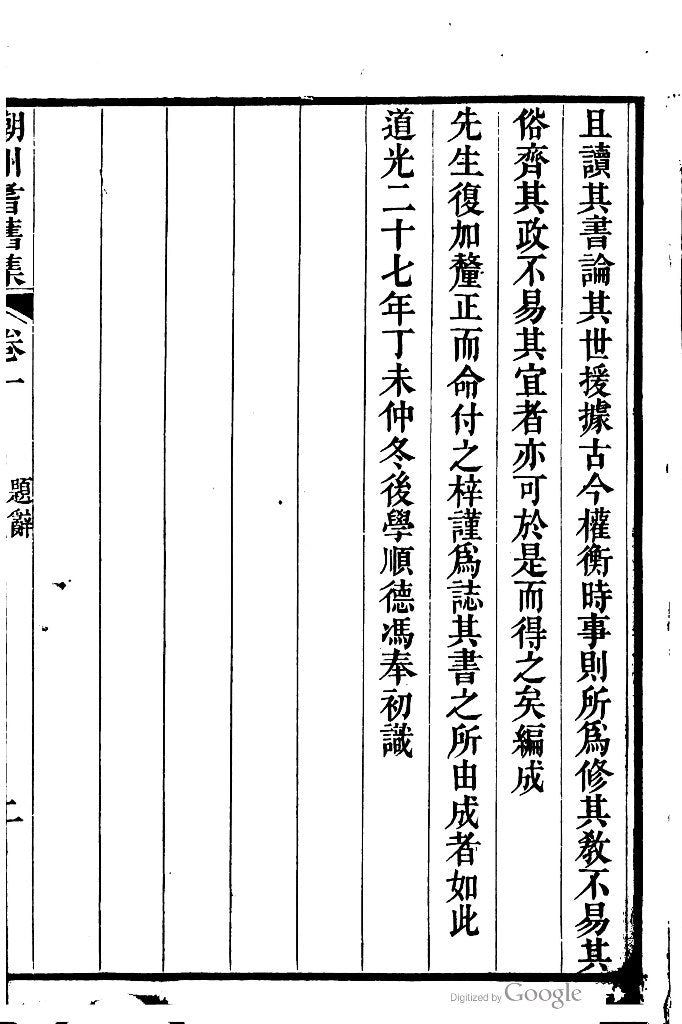 且讀其書論其世援據古今權衡時事則所爲修其教不易其
俗齊其政不易其宜者亦可於是而得之矣編成
先生復加釐正而命付之梓謹爲誌其書之所由成者如此
道光二十七年丁未仲冬後學順德馮奉初識
潮州耆舊集
卷一
題辭
二
Digitized by Google